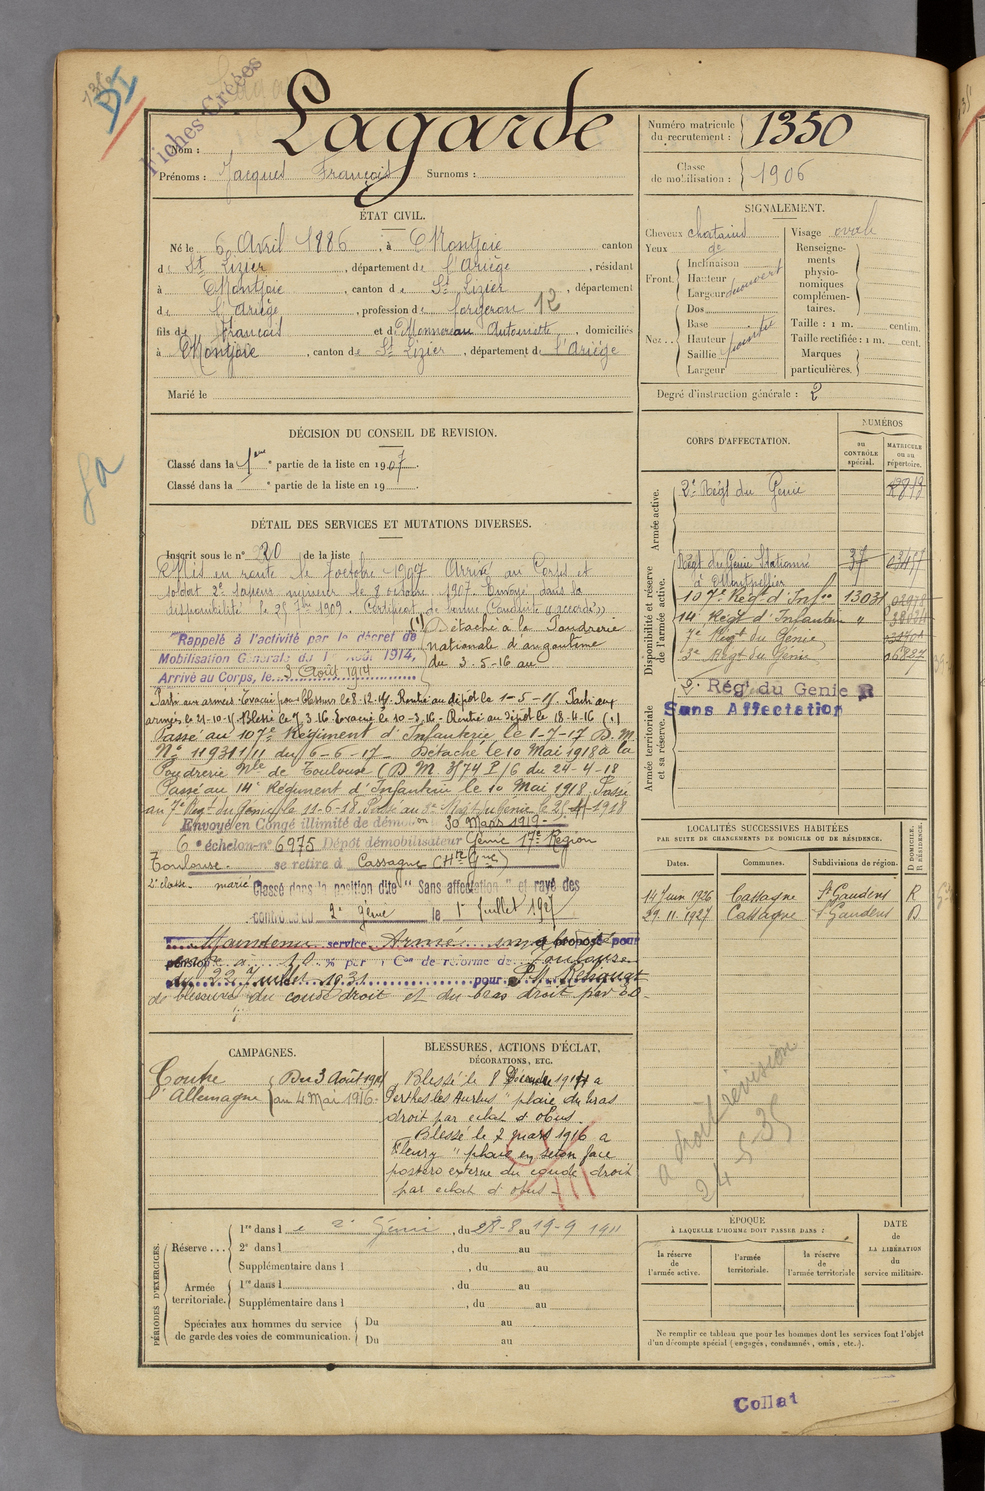 Fiches Créées
Nom : Lagarde
Prénoms : Jacques François Surnoms :
Numéro matricule du recrutement : 1350
Classe de mobilisation : 1906
ÉTAT CIVIL.
Né le 6 Avril 1886, à Montjoie canton
de St Lizier, département de l'Ariège, résidant
à Montjoie, canton de St Lizier, département
de l'Ariège, profession de forgeron 12
fils de François et de Antoinette, domiciliés
à Montjoie, canton de St Lizier, département de l'Ariège
Marié le
SIGNALEMENT.
Cheveux chatains
Yeux de
Front. Inclinaison
Hauteur
Largeur découvert
Nez... Dos
Base
Hauteur
Saillie pointu
Largeur
Visage ovale
Renseignements physionomiques complémentaires.
Taille : 1 m. centim.
Taille rectifiée : 1 m. cent.
Marques particulières.
Degré d'instruction générale : 2
DÉCISION DU CONSEIL DE REVISION.
Classé dans la 1ère partie de la liste en 1907.
Classé dans la e partie de la liste en 19
DÉTAIL DES SERVICES ET MUTATIONS DIVERSES.
Inscrit sous le n° 220 de la liste
Mis en route le 7 octobre 1907 Arrivé au Corps et
soldat 2e sapeur mineur le 8 octobre 1907. Envoyé dans la
disponibilité le 25 7bre 1909. Certificat de bonne Conduite "accordé"
Rappelé à l'activité par le décret de
Mobilisation Générale du 1 Août 1914,
Arrivé au Corps, le 3 Août 1914
(1) Détaché à la Poudrerie
nationale d'angoulême
du 3-5-16 au
Parti aux armées. Evacué pour blessure le 8-12-14. Rentré au dépôt le 1-5-15. Parti aux
armées le 21-10-15. Blessé le 7-3-16. Evacué le 10-3-16. Rentré au dépôt le 18-4-16 (1)
Passé au 107e Régiment d'Infanterie le 1-7-17 D.M.
No 11931/11 du 6-6-17. Détaché le 10 Mai 1918 à la
Poudrerie Nle de Toulouse (D M. 3/74 P/6 du 24-4-18
Passé au 14e Régiment d'Infanterie le 10 Mai 1918. Passé
au 7e Régt du Génie le 11-6-18. Passé au 2e Régt du Génie le 1918
Envoyé en Congé illimité de démon 30 Mars 1919
6e échelon n° 6975 Dépôt démobilisateur Génie 17e Région
Toulouse. se retire à Cassagne (Hte Gne)
2e classe. marié Classé dans la position dite "Sans affectation" et rayé des
contrôles du 2e génie le 1er Juillet 1927
Maintenu service Armé proposé pour
pension à 10 % par Con de réforme de Toulouse
du 22 Juillet 1931 pour
de blessures du coude droit et du bras droit par
CORPS D'AFFECTATION.
NUMÉROS
au CONTRÔLE spécial.
MATRICULE ou au répertoire.
Armée active.
2e Régt du Génie
Disponibilité et réserve de l'armée active.
Régt du Génie Stationné à Montpellier 37
107e Régt d'Infie 13031
14e Régt d'Infanterie "
7e Régt du Génie
2e Régt du Génie
Armée territoriale et sa réserve.
2e Régt du Genie R
Sans Affectation
LOCALITÉS SUCCESSIVES HABITÉES
PAR SUITE DE CHANGEMENTS DE DOMICILE OU DE RÉSIDENCE.
Dates. Communes. Subdivisions de région. D DOMICILE. R RÉSIDENCE.
14 Juin 1926 Cassagne St Gaudens R
29.11.1927 Cassagne St Gaudens D
a droit revision
24-5-35
CAMPAGNES.
Contre l'Allemagne
Du 3 Août 1914
au 4 Mai 1916.
BLESSURES, ACTIONS D'ÉCLAT,
DÉCORATIONS, ETC.
Blessé le 8 Décembre 1914 a
Perthes les Hurlus "plaie du bras
droit par eclat d'obus.
Blessé le 7 mars 1916 a
Fleury "plaie en seton face
postero externe du coude droit
par eclat d'obus
PÉRIODES D'EXERCICES.
Réserve... 1re dans l e 2e Génie, du 28-8 au 19-9 1911
2e dans l , du au
Supplémentaire dans l , du au
Armée territoriale. 1re dans l , du au
Supplémentaire dans l , du au
Spéciales aux hommes du service de garde des voies de communication. Du au
Du au
ÉPOQUE
À LAQUELLE L'HOMME DOIT PASSER DANS :
la réserve de l'armée active.
l'armée territoriale.
la réserve de l'armée territoriale
DATE de LA LIBÉRATION du service militaire.
Ne remplir ce tableau que pour les hommes dont les services font l'objet
d'un décompte spécial (engagés, condamnés, omis, etc.).
Collat